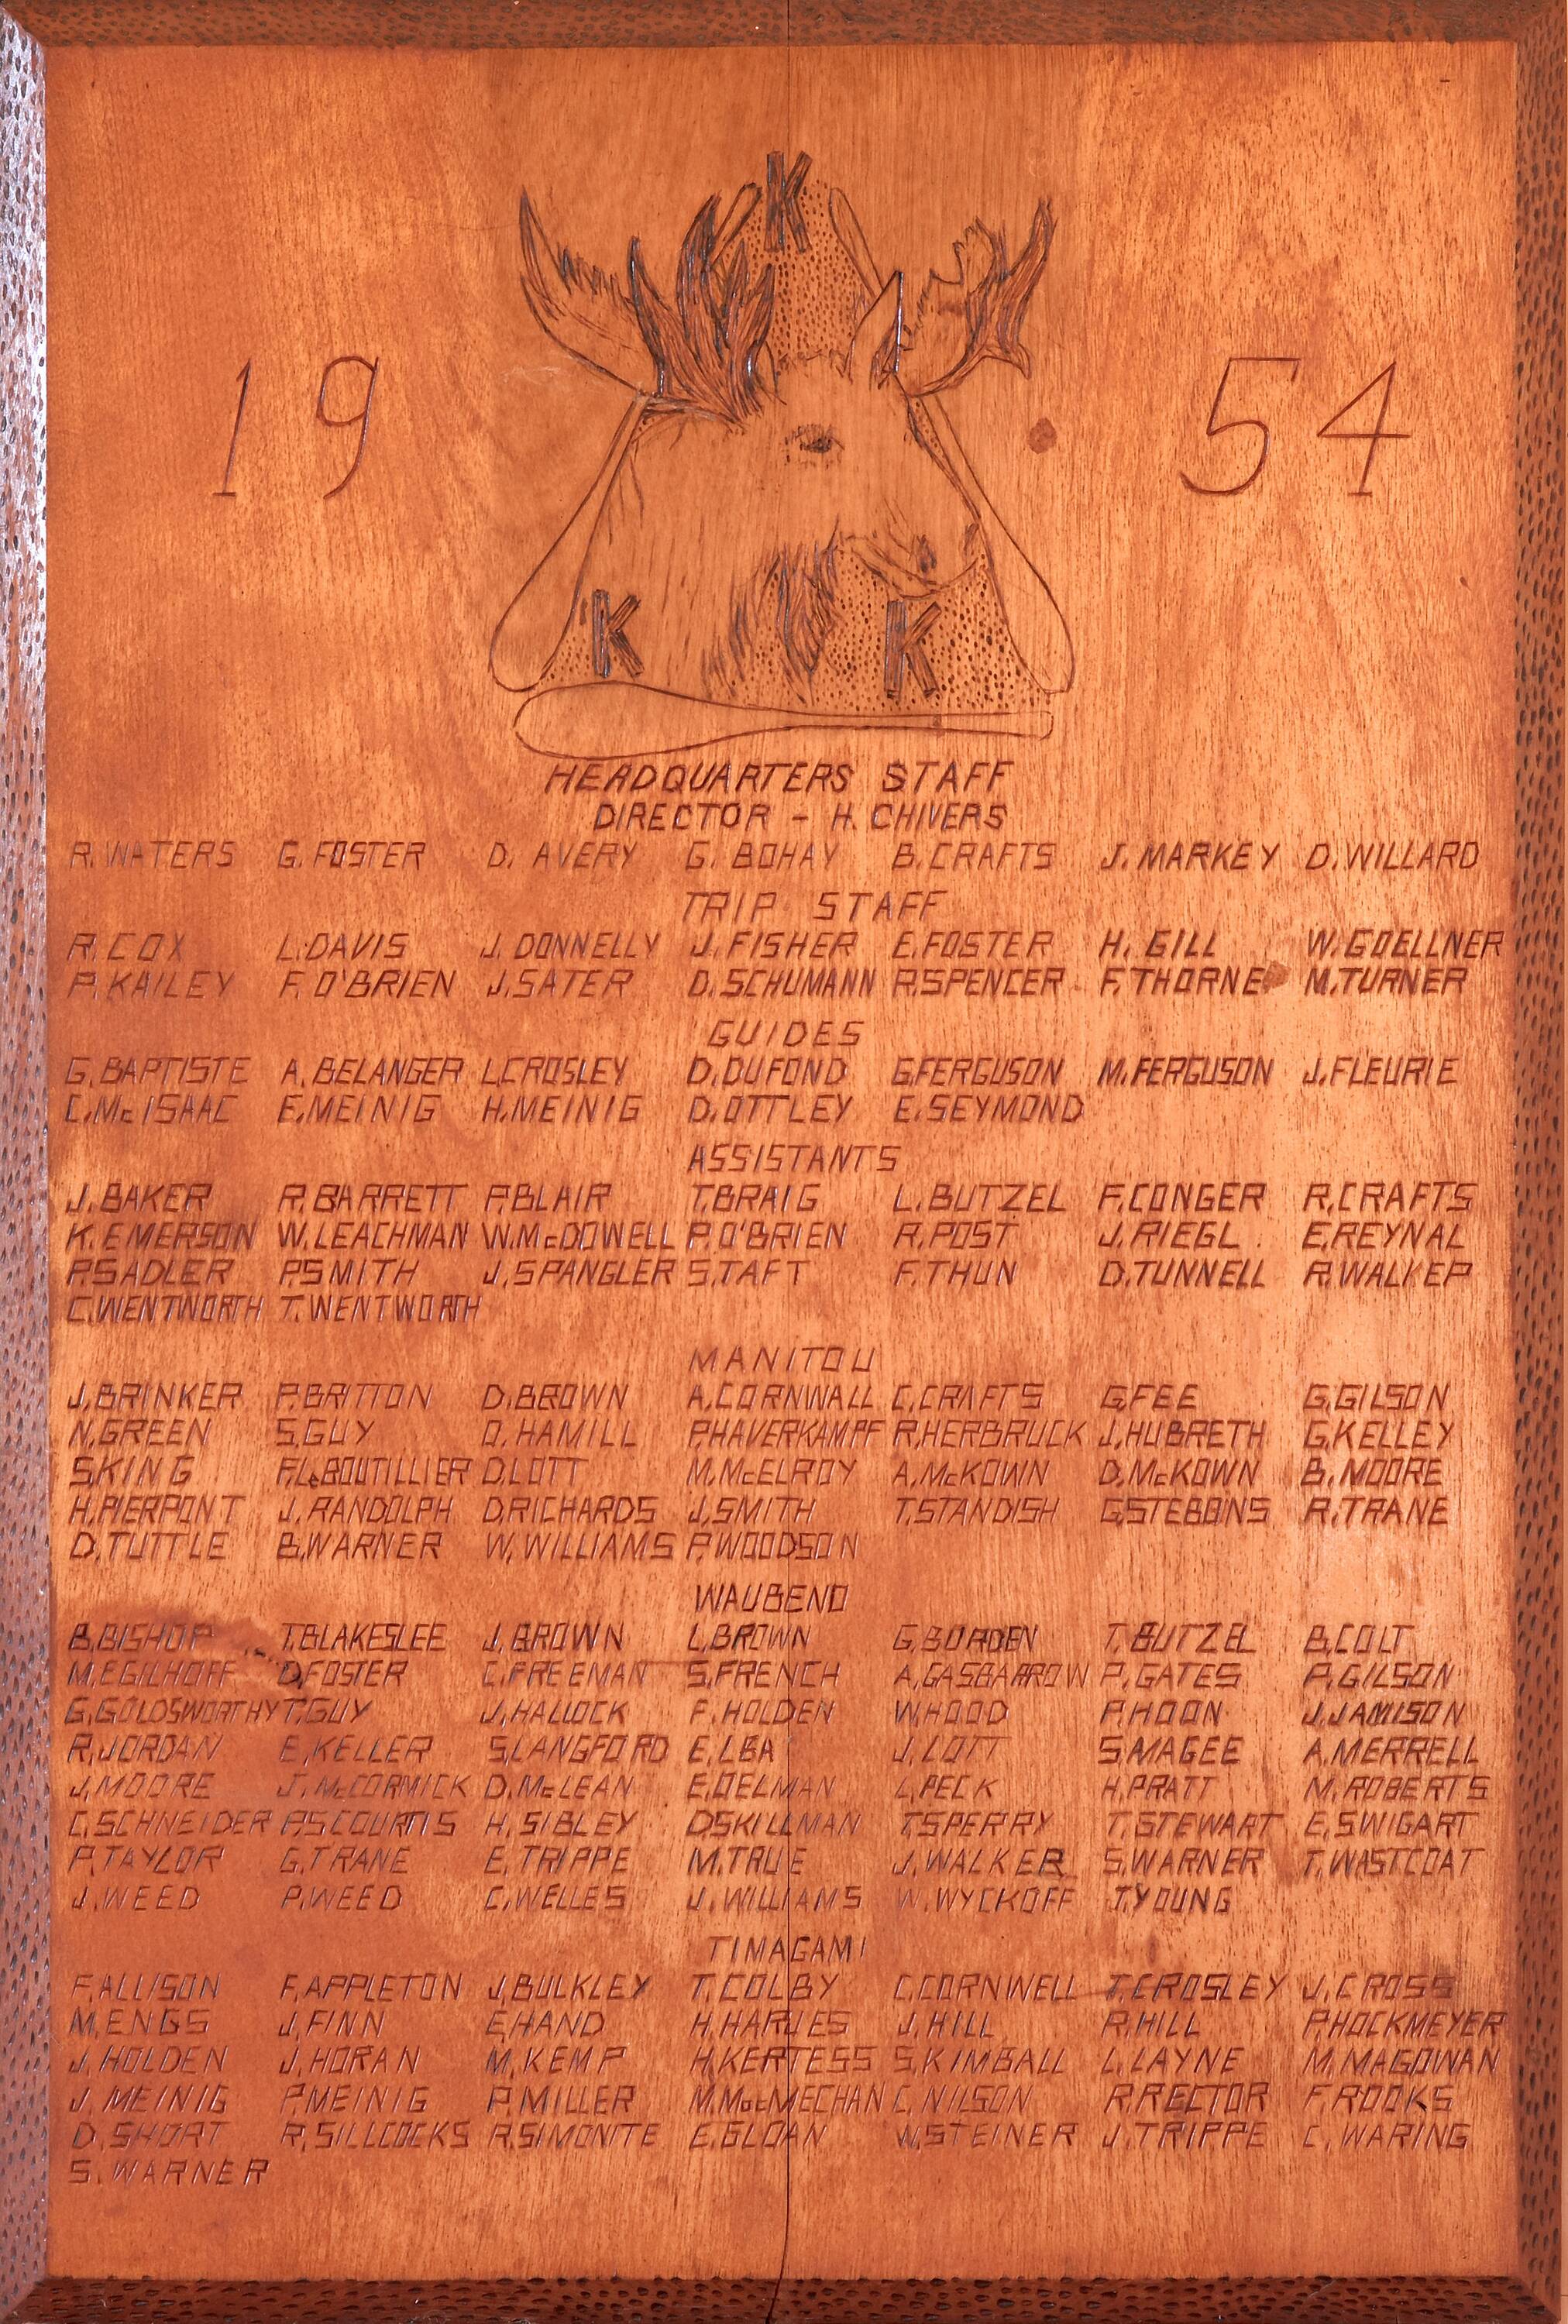 K
19 54
K K
HEADQUARTERS STAFF
DIRECTOR - H. CHIVERS
R. WATERS G. FOSTER D. AVERY G. BOHAY B. CRAFTS J. MARKEY D. WILLARD
TRIP STAFF
R. COX L. DAVIS J. DONNELLY J. FISHER E. FOSTER H. GILL W. GOELLNER
P. KAILEY F. O'BRIEN J. SATER D. SCHUMANN R. SPENCER F. THORNE M. TURNER
GUIDES
G. BAPTISTE A. BELANGER L. CROSLEY D. DUFOND G. FERGUSON M. FERGUSON J. FLEURIE
C. McISAAC E. MEINIG H. MEINIG D. OTTLEY E. SEYMOND
ASSISTANTS
J. BAKER R. BARRETT P. BLAIR T. BRAIG L. BUTZEL F. CONGER R. CRAFTS
K. EMERSON W. LEACHMAN W. McDOWELL P. O'BRIEN R. POST J. RIEGL E. REYNAL
P. SADLER P. SMITH J. SPANGLER S. TAFT F. THUN D. TUNNELL R. WALKER
C. WENTWORTH T. WENTWORTH
MANITOU
J. BRINKER P. BRITTON D. BROWN A. CORNWALL C. CRAFTS G. FEE G. GILSON
N. GREEN S. GUY D. HAMILL P. HAVERKAMPF R. HERBRUCK J. HUBRETH G. KELLEY
S. KING F. LeBOUTILLIER D. LOTT M. McELROY A. McKOWN D. McKOWN B. MOORE
H. PIERPONT J. RANDOLPH D. RICHARDS J. SMITH T. STANDISH G. STEBBINS R. TRANE
D. TUTTLE B. WARNER W. WILLIAMS P. WOODSON
WAUBENO
B. BISHOP T. BLAKESLEE J. BROWN L. BROWN G. BURDEN T. BUTZEL B. COLT
M. EGILHOFF D. FOSTER C. FREEMAN S. FRENCH A. GASBARROW P. GATES P. GILSON
G. GOLDSWORTHY T. GUY J. HALLOCK F. HOLDEN W. HOOD P. HOON J. JAMISON
R. JORDAN E. KELLER S. LANGFORD E. LBA J. LOTT S. MAGEE A. MERRELL
J. MOORE J. McCORMICK D. McLEAN E. OELMAN L. PECK H. PRATT M. ROBERTS
C. SCHNEIDER P. SCOURTIS H. SIBLEY D. SKILLMAN T. SPERRY T. STEWART E. SWIGART
P. TAYLOR G. TRANE E. TRIPPE M. TRUE J. WALKER S. WARNER T. WASTCOAT
J. WEED P. WEED C. WELLES J. WILLIAMS W. WYCKOFF J. YOUNG
TIMAGAMI
F. ALLISON F. APPLETON J. BULKLEY T. COLBY C. CORNWELL T. CROSLEY J. CROSS
M. ENGS J. FINN E. HAND H. HARJES J. HILL R. HILL P. HOCKMEYER
J. HOLDEN J. HORAN M. KEMP H. KERTESS S. KIMBALL L. LAYNE M. MAGOWAN
J. MEINIG P. MEINIG P. MILLER M. MacMECHAN C. NILSON R. RECTOR F. ROOKS
D. SHORT R. SILLCOCKS R. SIMONTE E. GLOAN W. STEINER J. TRIPPE C. WARING
S. WARNER